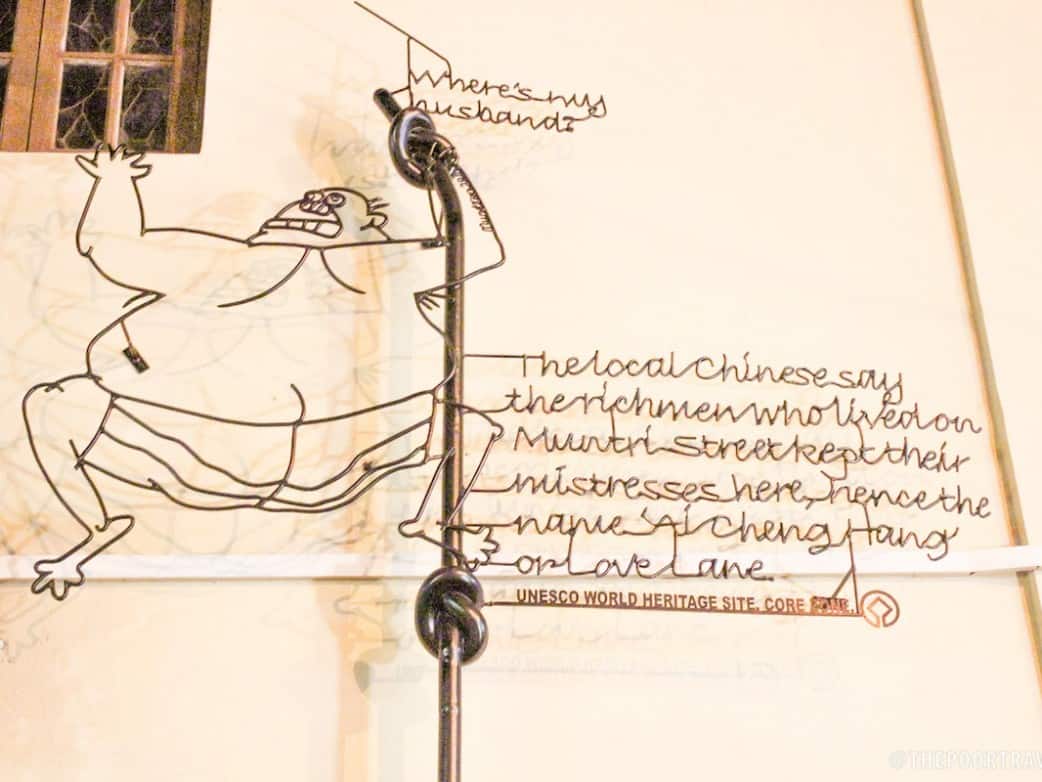 Where's my
husband?
The local Chinese say
the rich men who lived on
Muntri Street kept their
mistresses here, hence the
name 'Ai Cheng Hang
or Love Lane.
UNESCO WORLD HERITAGE SITE. CORE ZONE.
@THEPOORTRAV